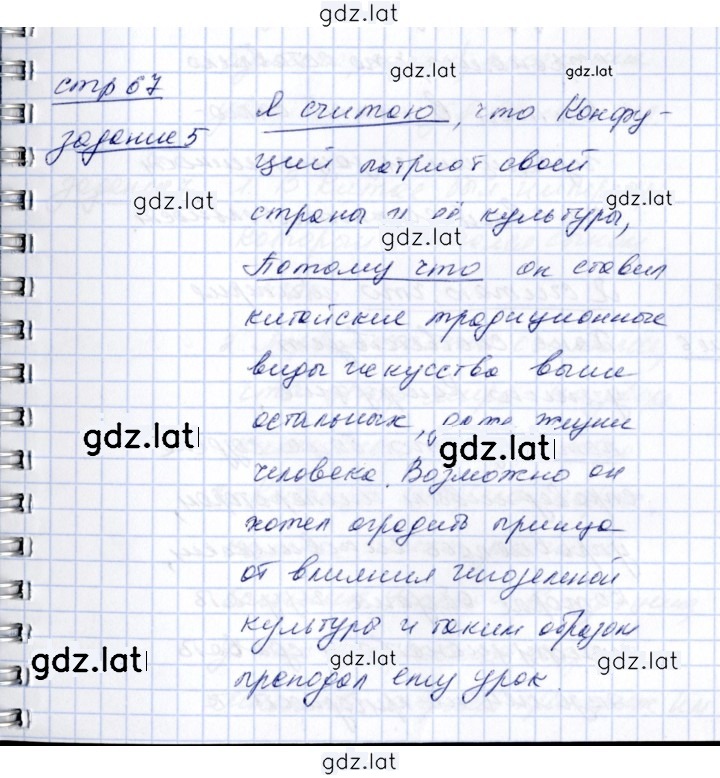 gdz.lat
стр 67
gdz.lat gdz.lat
Я считаю, что Конфу-
задание 5
ций патриот своей
gdz.lat gdz.lat
страны и культуры,
gdz.lat
Потому что он ставил
китайские традиционные
виды искусства выше
остальных, даже жизни
gdz.lat gdz.lat
человека. Возможно он
хотел оградить принца
от влияния иноземной
культуры и таким образом
gdz.lat gdz.lat gdz.lat
преподал ему урок.
gdz.lat